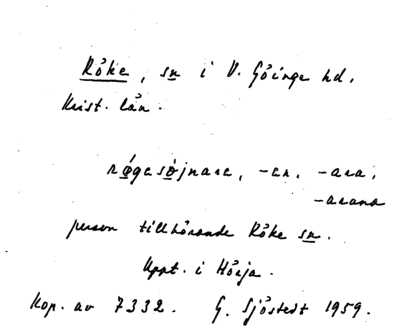 Röke, sn i V. Göinge hd.
Krist. län.
røgasøjnara, -an, -ara,
-arana
person tillhörande Röke sn.
Uppt. i Hörja.
Kop. av 7332. G. Sjöstedt 1959.